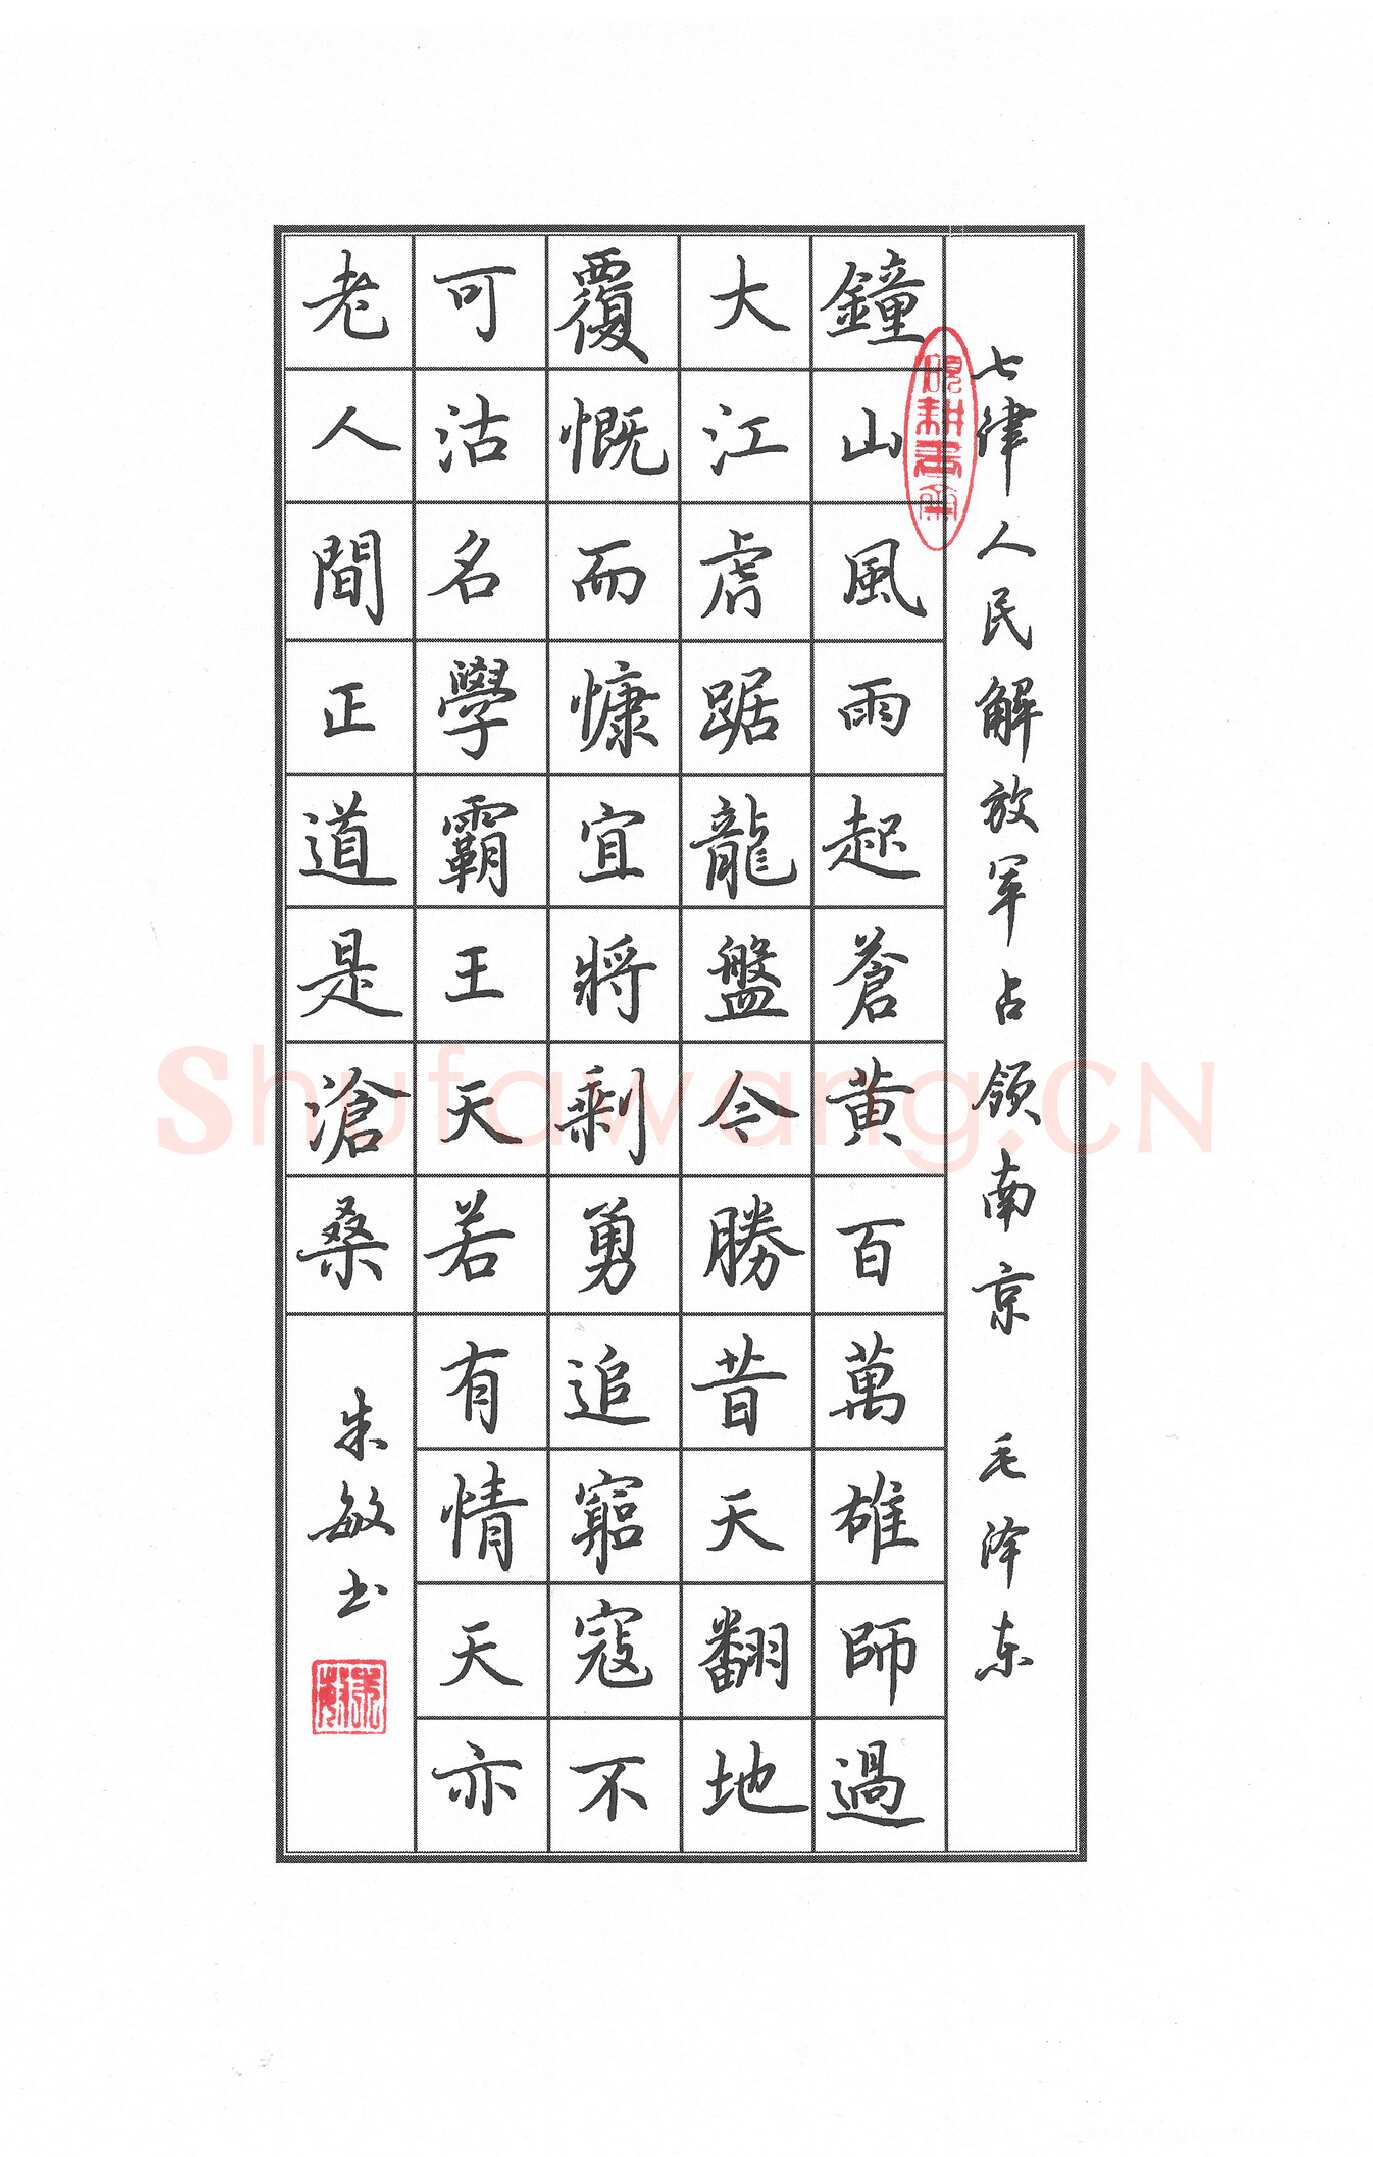 七律人民解放军占领南京 毛泽东
鐘山風雨起蒼黄百萬雄師過
大江虎踞龍盤今勝昔天翻地
覆慨而慷宜將剩勇追窮寇不
可沽名學霸王天若有情天亦
老人間正道是滄桑
朱敏书
Shufawang.CN